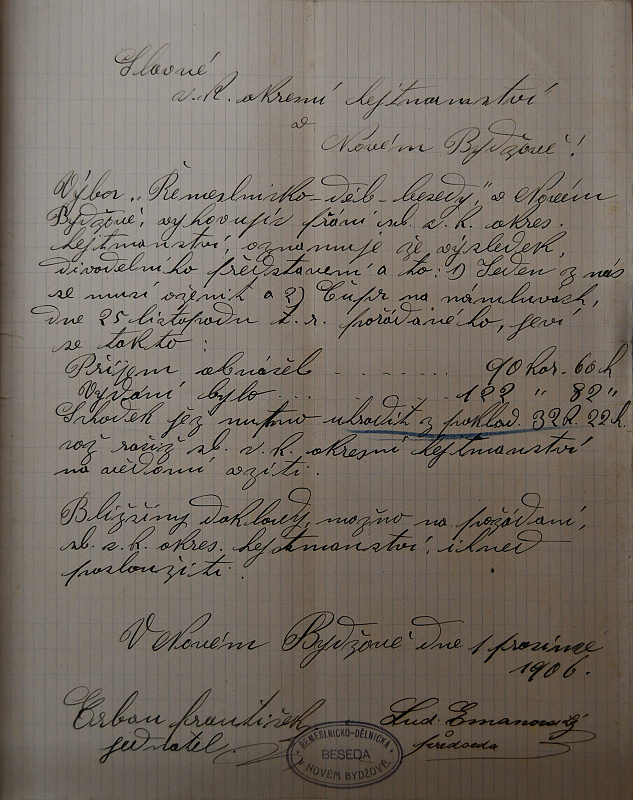 Slavné
c. k. okresní hejtmanství
v
Novém Bydžově!
Výbor „Řemeslnicko-děl-besedy," v Novém
Bydžově, vyhovujíc přání sl. c. k. okres.
hejtmanství, oznamuje že výsledek,
divadelního představení a to: 1) Jeden z nás
se musí oženit a 2) Čupr na námluvách,
dne 25 listopadu t. r. pořádaného, jeví
se takto:
Příjem obnášel . . . . . . . 90 kor. 60 h
Vydání bylo . . . . . . . 122 " 82 "
Schodek jež nutno uhradit z poklad. 32 K. 22 h.
což račiž sl. c. k. okresní hejtmanství
na vědomí vzíti.
Bližšímy doklady, možno na požádaní,
sl. c. k. okres. hejtmanství, ihned
posloužiti.
V Novém Bydžově dne 1 prosince
1906.
Erban František Lud.
jednatel předseda
ŘEMESLNICKO-DĚLNICKÁ
BESEDA
V NOVÉM BYDŽOVĚ.